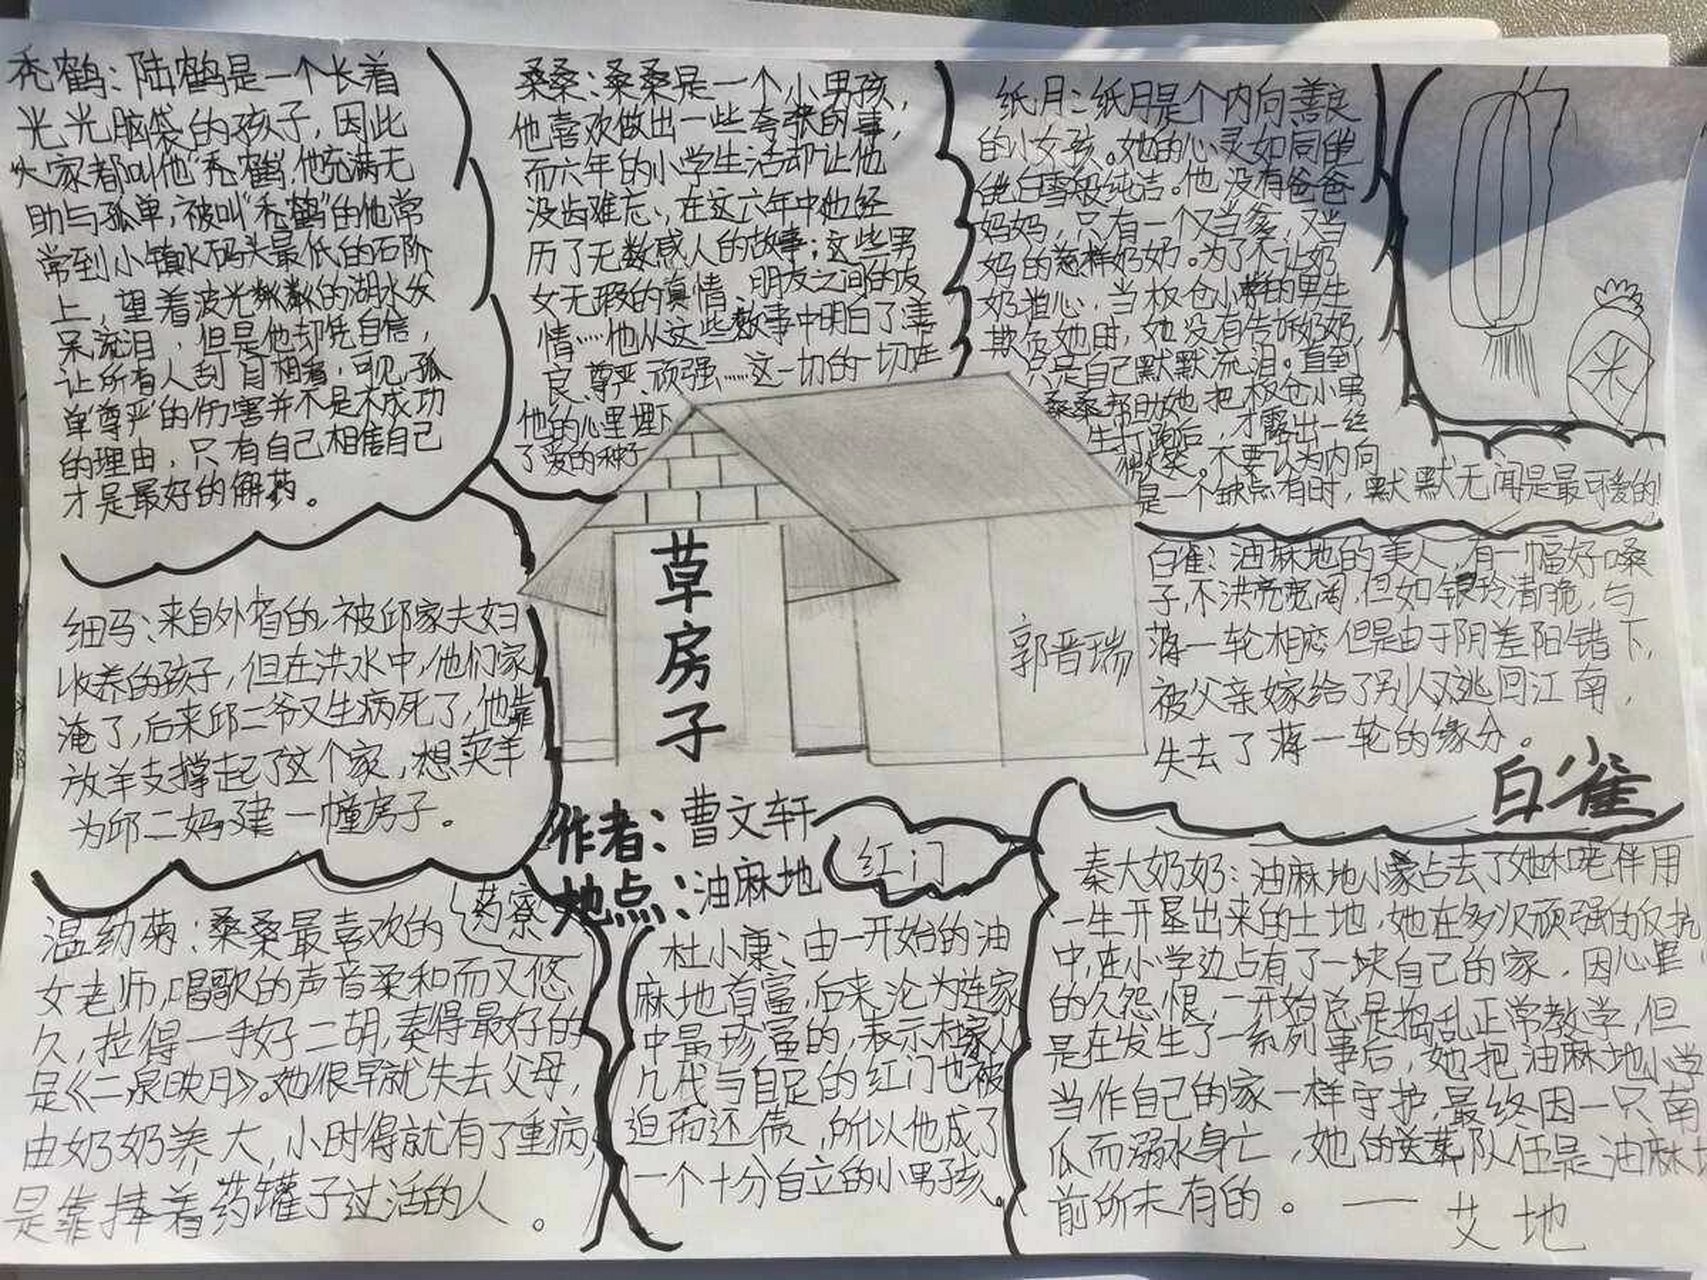 秃鹤：陆鹤是一个长着
光光脑袋的孩子，因此
大家都叫他"秃鹤"，他充满无
助与孤单，被叫"秃鹤"的他常
常到小镇水码头最低的石阶
上，望着波光粼粼的湖水发
呆流泪，但是他却凭自信，
让所有人刮目相看，可见孤
单"尊严"的伤害并不是不成功
的理由，只有自己相信自己
才是最好的解药。
桑桑：桑桑是一个小男孩，
他喜欢做出一些夸张的事，
而六年的小学生活却让他
没齿难忘，在这六年中他经
历了无数感人的故事；这些男
女无瑕的真情、朋友之间的友
情……他从这些故事中明白了善
良、尊严、顽强……这一切的一切在
他的心里埋下
了爱的种子
纸月：纸月是个内向善良
的小女孩。她的心灵如同
白雪般纯洁。他没有爸爸
妈妈，只有一个又当爹，又当
妈的慈祥奶奶。为了不让奶
奶担心，当板仓小学的男生
欺负她时，她没有告诉奶奶，
只是自己默默流泪。直到
桑桑帮助她把板仓小男
生打跑后，才露出一丝
微笑。不要认为内向
是一个缺点有时，默默无闻是最可爱的！
米
细马：来自外省的，被邱家夫妇
收养的孩子，但在洪水中，他们家
淹了，后来邱二爷又生病死了，他靠
放羊支撑起了这个家，想卖羊
为邱二妈建一幢房子。
草房子
郭晋瑞
作者：曹文轩
地点：油麻地
白雀：油麻地的美人，有一幅好嗓
子，不洪亮宽阔，但如银玲清脆，与
蒋一轮相恋但是由于阴差阳错下，
被父亲嫁给了别人又逃回江南，
失去了蒋一轮的缘分。
白雀
药寮
温幼菊：桑桑最喜欢的
女老师，唱歌的声音柔和而又悠
久，拉得一手好二胡，奏得最好的
是《二泉映月》。她很早就失去父母，
由奶奶养大，小时得就有了重病，
是靠捧着药罐子过活的人。
红门
杜小康：由一开始的油
麻地首富，后来沦为连家
中最珍富的，表示杜家人
几代与自足的红门也被
迫而还债，所以他成了
一个十分自立的小男孩。
秦大奶奶：油麻地小学占去了她和老伴用
一生开垦出来的土地，她在多次顽强的反抗
中，在小学边占有了一块自己的家，因心里
的久怨恨，一开始总是捣乱正常教学，但
是在发生了一系列事后，她把油麻地小学
当作自己的家一样守护，最终因一只南
瓜而溺水身亡，她的送葬队伍是油麻地
前所未有的。
——艾地